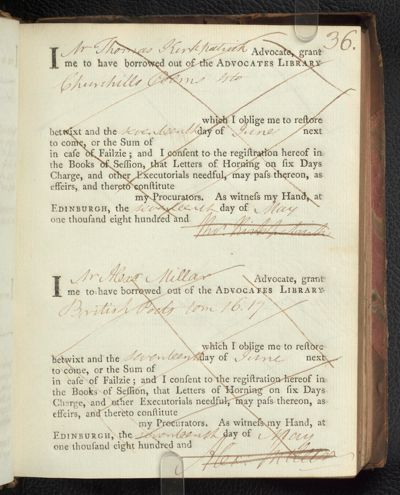 36.
I Mr Thomas Kirkpatrick Advocate, grant
me to have borrowed out of the ADVOCATES LIBRARY
Churchills Poems
which I oblige me to reſtore
betwixt and the seventeenth day of June next
to come, or the Sum of
in caſe of Failzie; and I conſent to the regiſtration hereof in
the Books of Seſſion, that Letters of Horning on ſix Days
Charge, and other Executorials needful, may paſs thereon, as
effeirs, and thereto conſtitute
my Procurators. As witneſs my Hand, at
EDINBURGH, the seventeenth day of May
one thouſand eight hundred and
Thos. Kirkpatrick
I Mr Alexr Millar Advocate, grant
me to have borrowed out of the ADVOCATES LIBRARY
British Poets tom 16. 17
which I oblige me to reſtore
betwixt and the seventeenth day of June next
to come, or the Sum of
in caſe of Failzie; and I conſent to the regiſtration hereof in
the Books of Seſſion, that Letters of Horning on ſix Days
Charge, and other Executorials needful, may paſs thereon, as
effeirs, and thereto conſtitute
my Procurators. As witneſs my Hand, at
EDINBURGH, the seventeenth day of May
one thouſand eight hundred and
Alexr. Millar